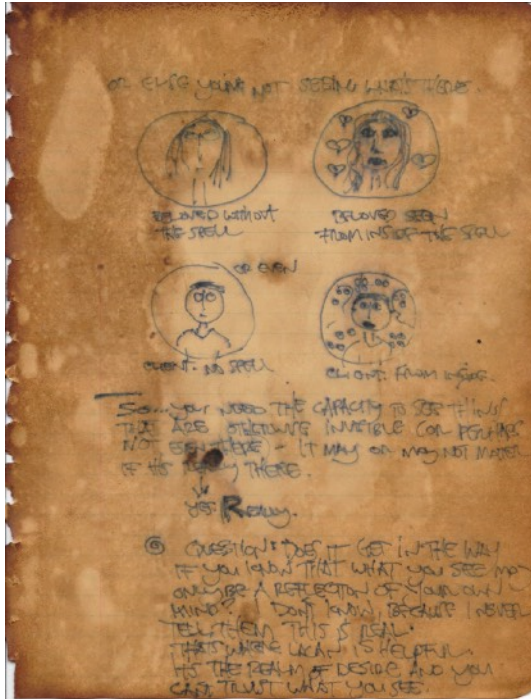 OR ELSE YOU'RE NOT SEEING WHAT'S THERE.
BELOVED WITHOUT
THE SPELL
BELOVED SEEN
FROM INSIDE THE SPELL
OR EVEN
CLIENT. NO SPELL
CLIENT. FROM INSIDE.
SO... YOU NEED THE CAPACITY TO SEE THINGS
THAT ARE OTHERWISE INVISIBLE (OR PERHAPS
NOT EVEN THERE) - IT MAY OR MAY NOT MATTER
IF IT'S REALLY THERE.
YES. REALLY.
QUESTION: DOES IT GET IN THE WAY
IF YOU KNOW THAT WHAT YOU SEE MAY
ONLY BE A REFLECTION OF YOUR OWN
MIND? I DON'T KNOW, BECAUSE I NEVER
TELL THEM THIS IS REAL.
THAT'S WHERE LACAN IS HELPFUL.
IT'S THE REALM OF DESIRE AND YOU
CAN'T TRUST WHAT YOU SEE.